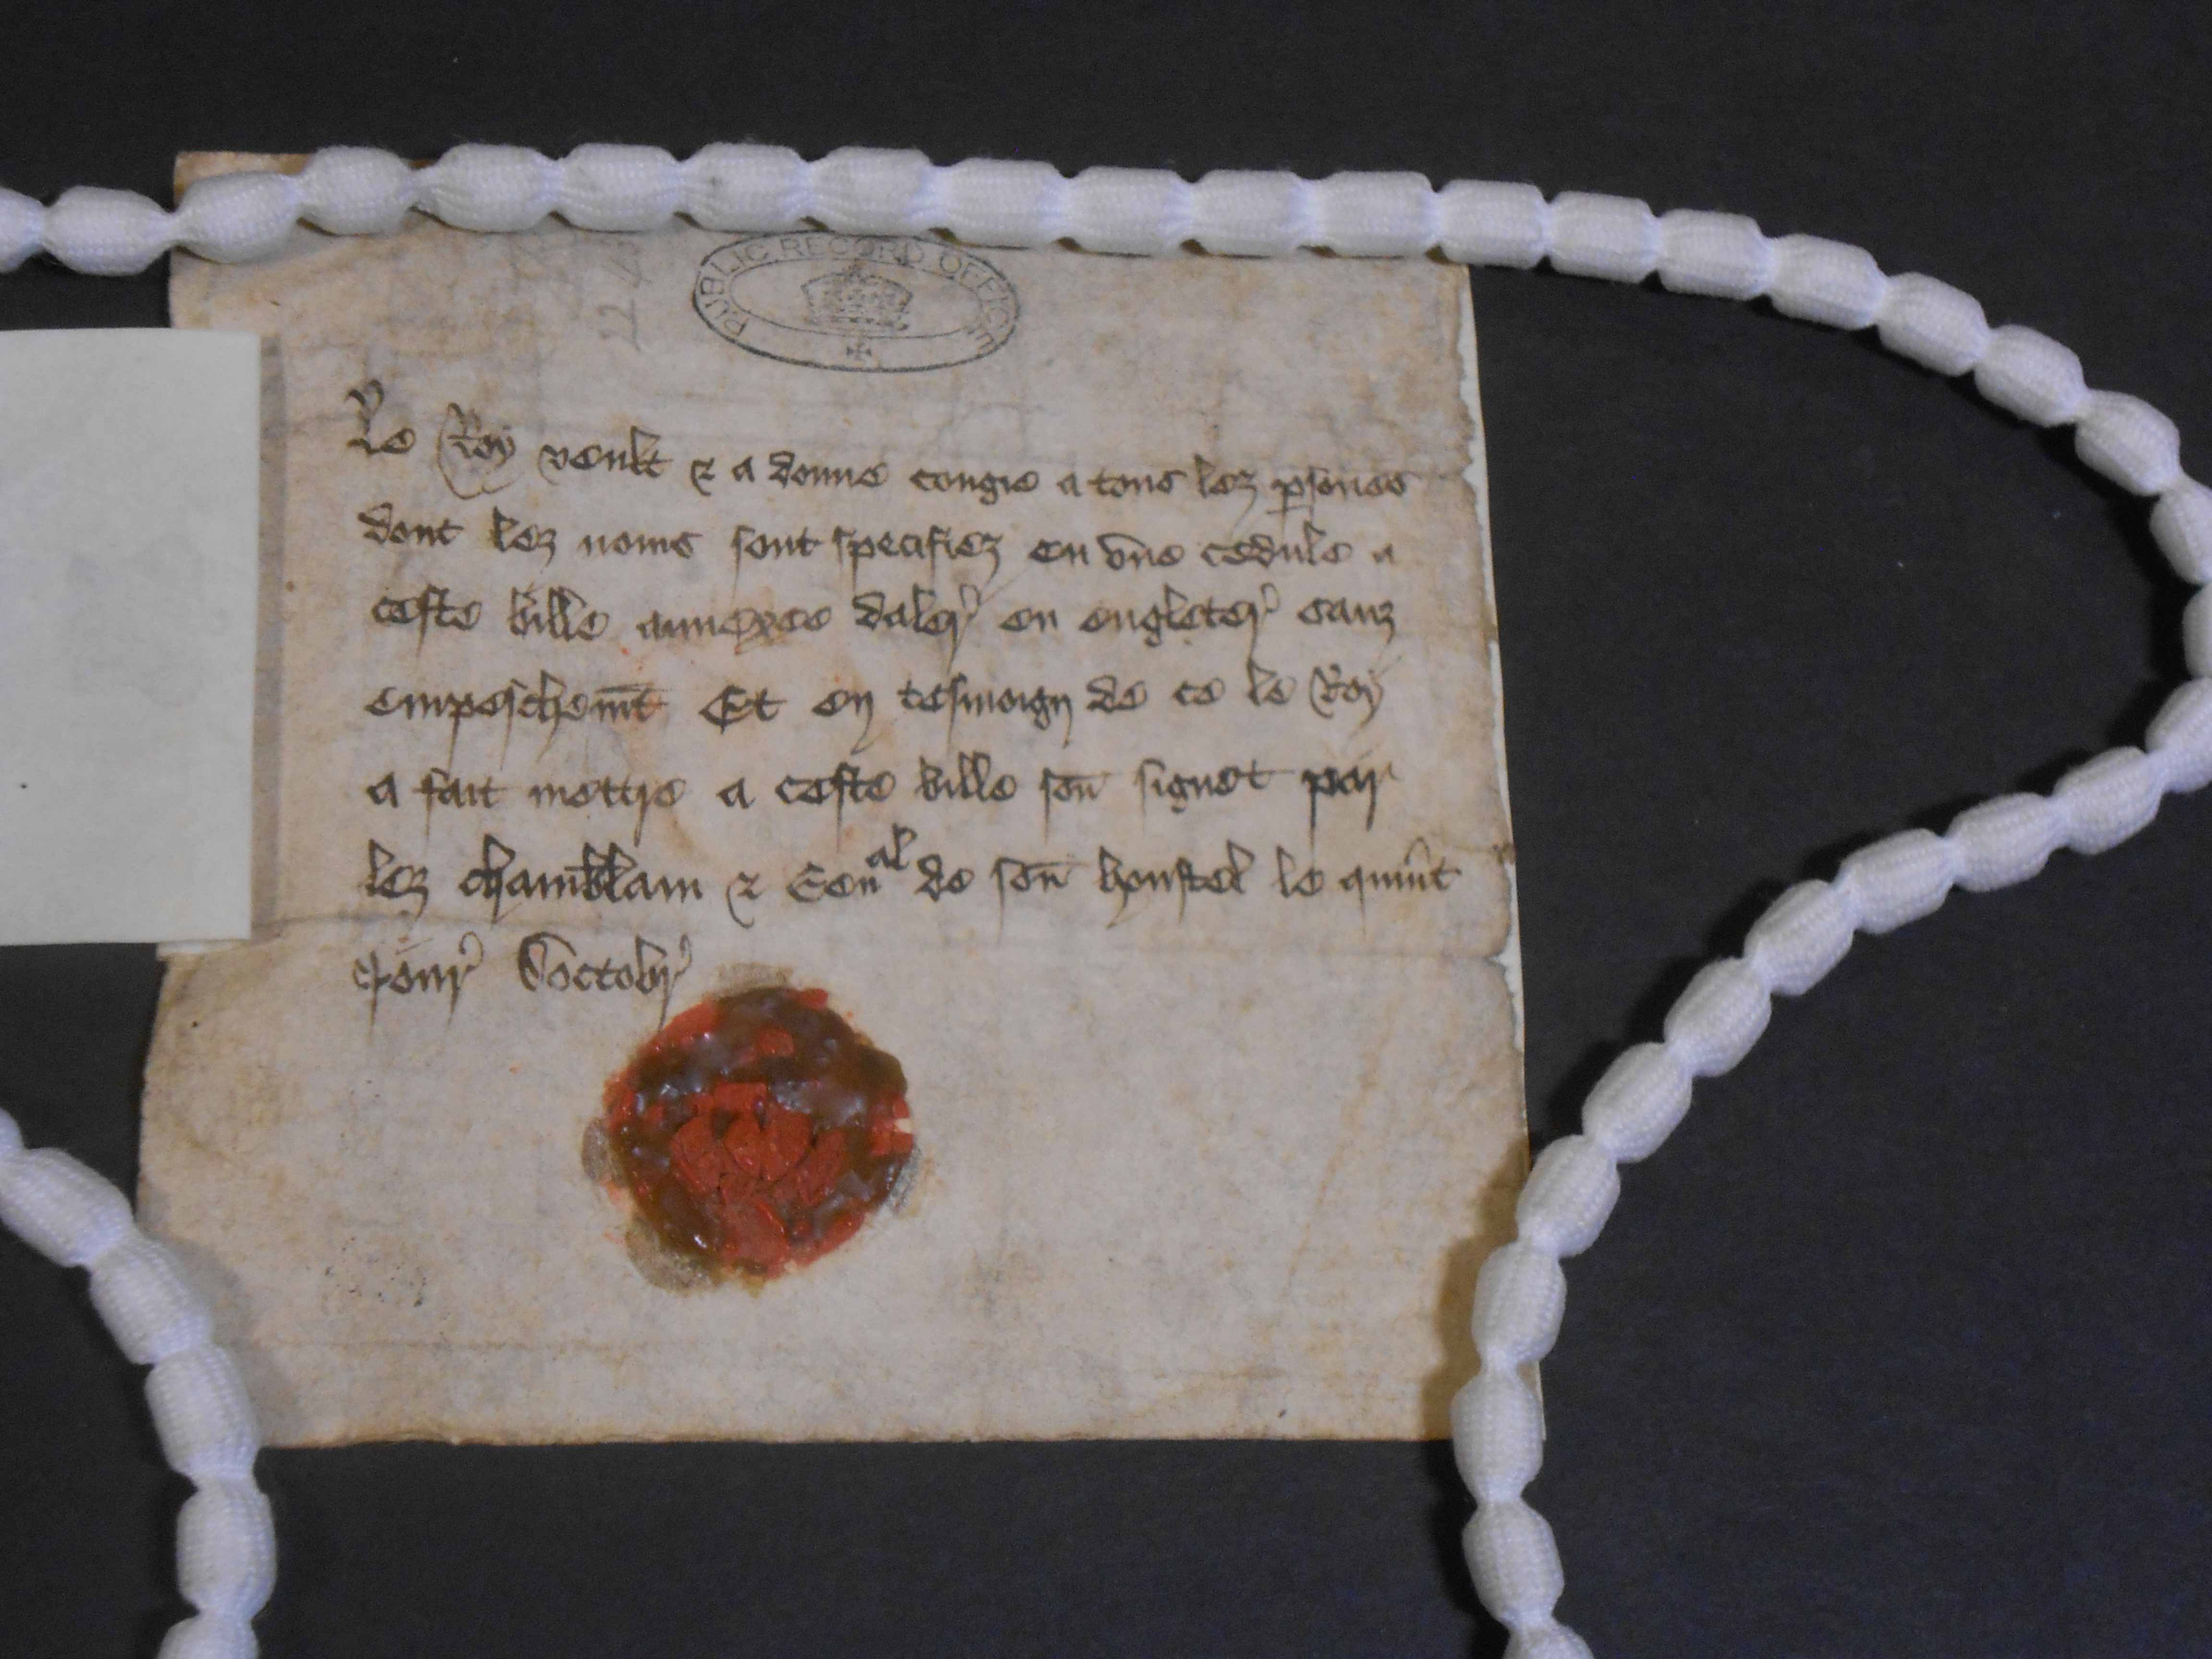 PUBLIC RECORD OFFICE
Le Roy veult & a donne congie a tous lez psones
dont lez noms sont specifiez en vne cedule a
ceste bille annexee daler en engleter sanz
empeschemt Et en tesmoign de ce le Roy
a fait mettre a ceste bille son signet par
lez chambllain & Senal de son houstel le quint
Jour Doctobr